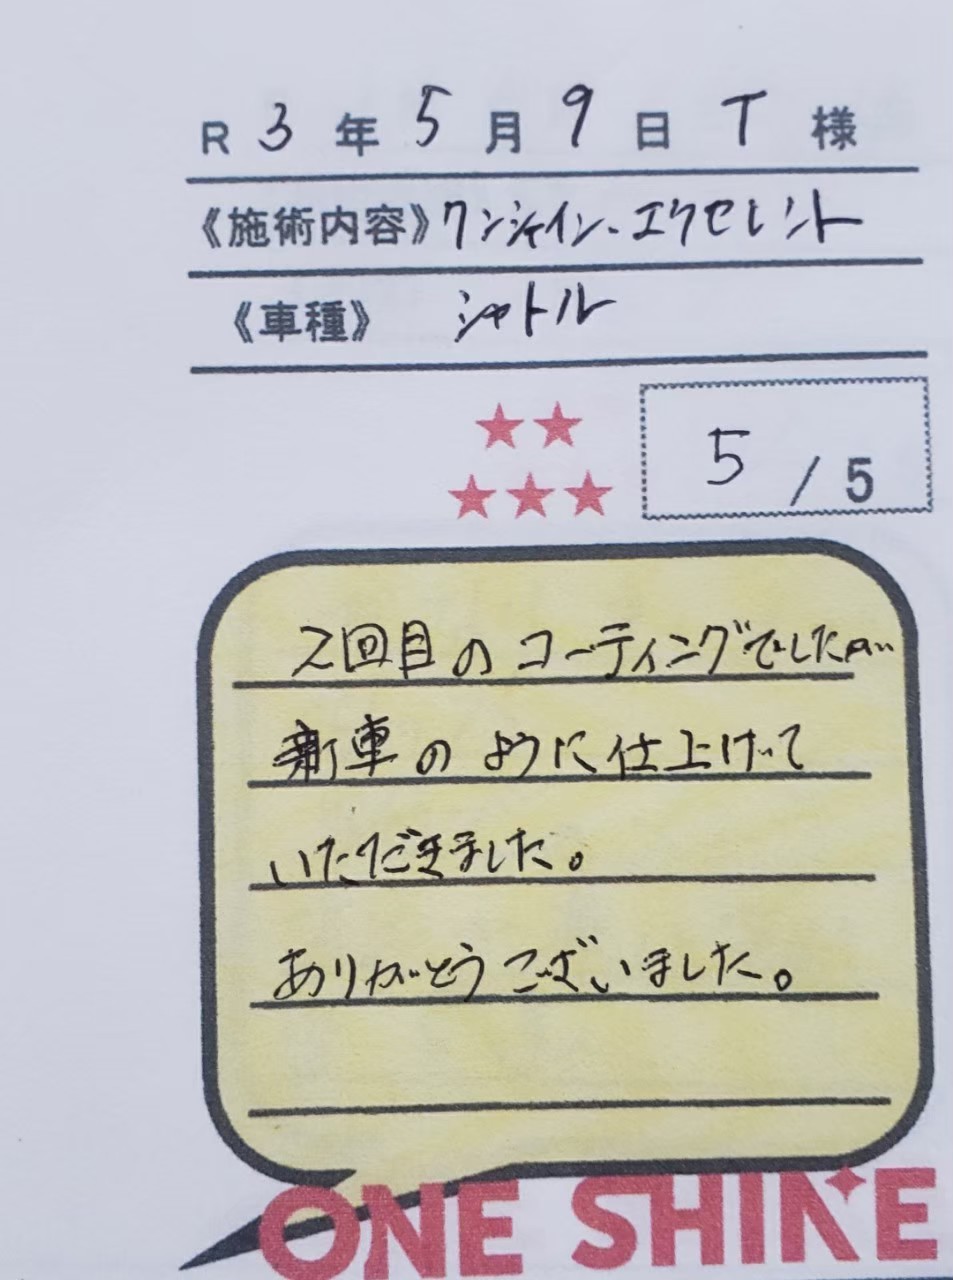 R 3 年 5 月 9 日 T 様
《施術内容》ワンシャイン、エクセレント
《車種》 シャトル
★★
★★★
5 / 5
2回目の コーティングでしたが
新車の ように 仕上げて
いただきました。
ありがとう ございました。
ONE SHINE